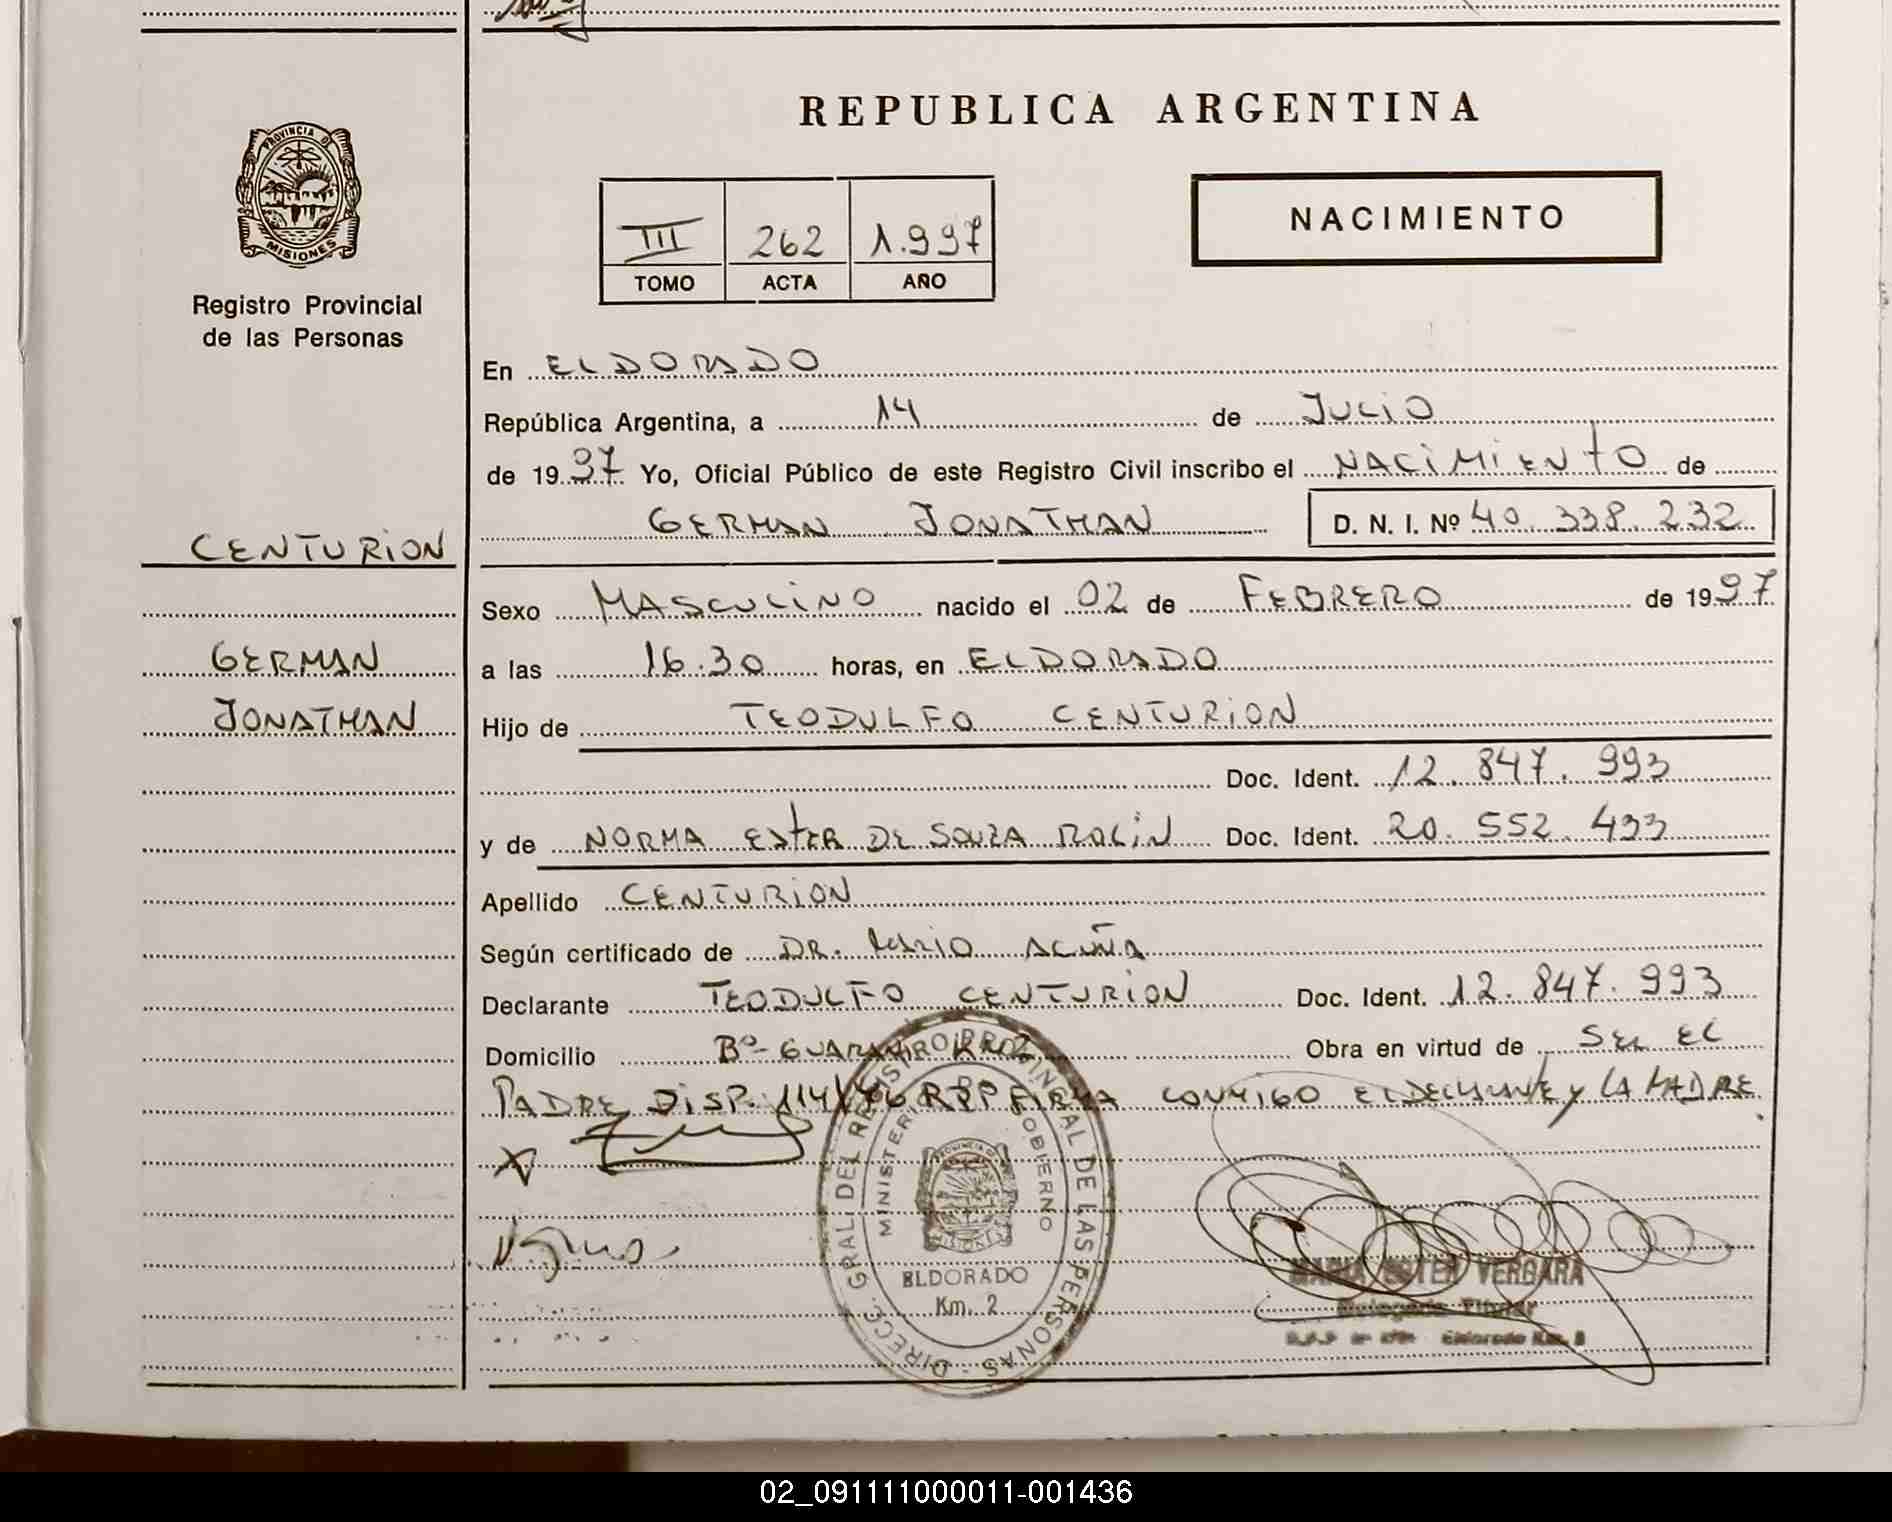 REPUBLICA ARGENTINA
PROVINCIA DE
MISIONES
Registro Provincial
de las Personas
III 262 1.997
TOMO ACTA AÑO
NACIMIENTO
En ELDORADO
República Argentina, a 14 de JULIO
de 1997 Yo, Oficial Público de este Registro Civil inscribo el NACIMIENTO de
GERMAN JONATHAN D. N. I. Nº 40.338.232
CENTURION
Sexo MASCULINO nacido el 02 de FEBRERO de 1997
GERMAN
a las 16.30 horas, en ELDORADO
JONATHAN
Hijo de TEODULFO CENTURION
Doc. Ident. 12.847.993
y de NORMA ESTER DE SOUZA ROLIN Doc. Ident. 20.552.433
Apellido CENTURION
Según certificado de DR. MARIO ACUÑA
Declarante TEODULFO CENTURION Doc. Ident. 12.847.993
Domicilio Bº- GUARANI Obra en virtud de SER EL
PADRE DISP. 114/76 RPP FIRMA CONMIGO EL DECLARANTE y LA MADRE.
DIREC. GRAL. DEL REGISTRO PROVINCIAL DE LAS PERSONAS
MINISTERIO DE GOBIERNO
MISIONES
ELDORADO
Km. 2
MARIA ESTER VERGARA
Delegada Titular
Eldorado Km.
02_091111000011-001436